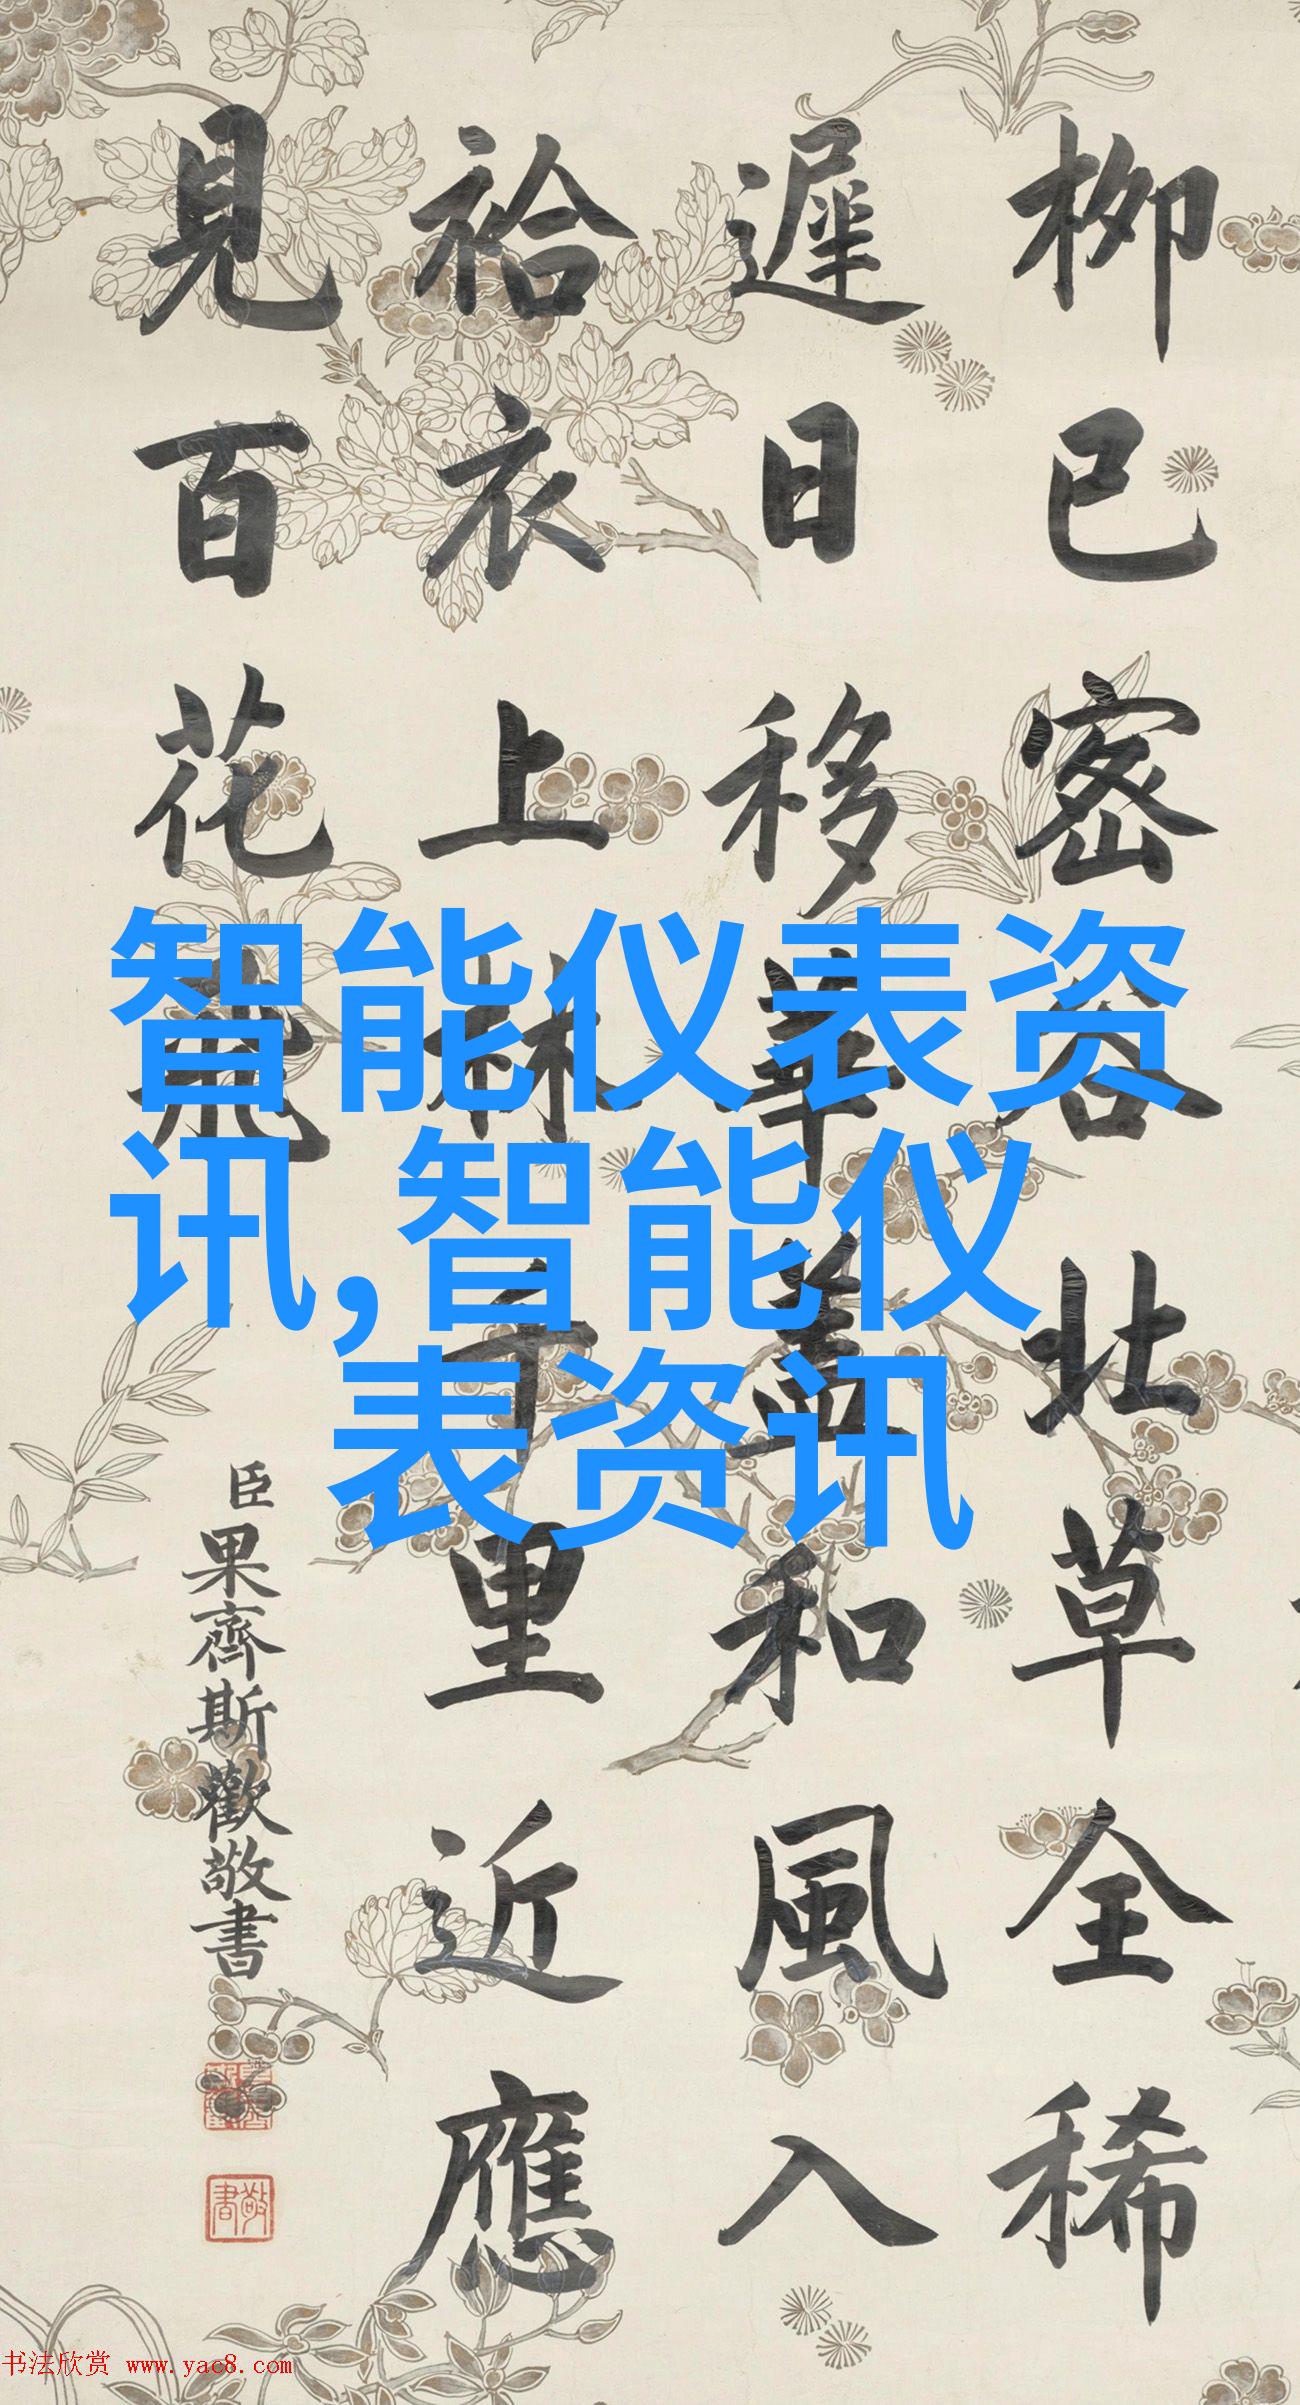 柳已密谷北草全稀
遲日移華蓋和風入
袷衣上林千里近應
見百花飛
臣果齊斯歡敬書
敬書
智能仪表资
讯,智能仪
表资讯
书法欣赏 www.yac8.com